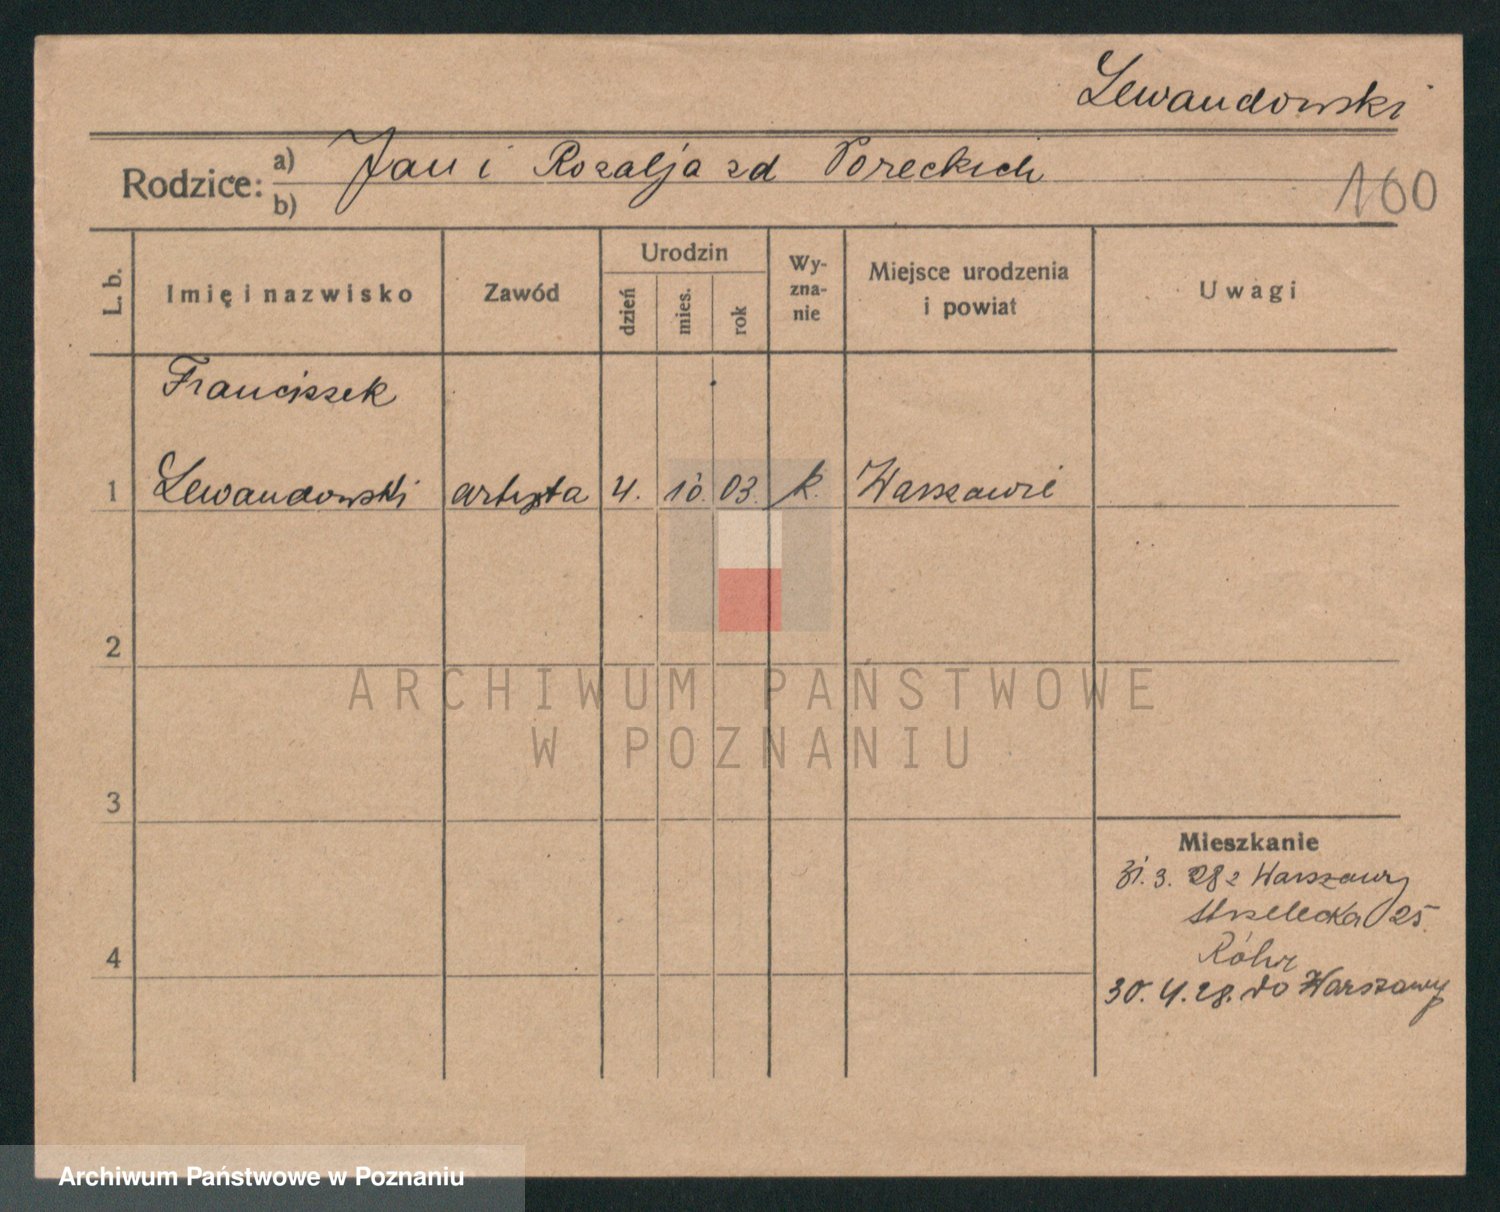 Lewandowski
Rodzice: a) Jan i Rozalja zd Poreckich
b)
160
L. b.
Imię i nazwisko
Zawód
Urodzin
dzień
mies.
rok
Wy-
zna-
nie
Miejsce urodzenia
i powiat
Uwagi
Franciszek
1 Lewandowski artysta 4. 10. 03. k. Warszawie
2
3
4
ARCHIWUM PAŃSTWOWE
W POZNANIU
Mieszkanie
31. 3. 28 z Warszawy
Strzelecka 25.
Röhr
30. 4. 28. do Warszawy
Archiwum Państwowe w Poznaniu